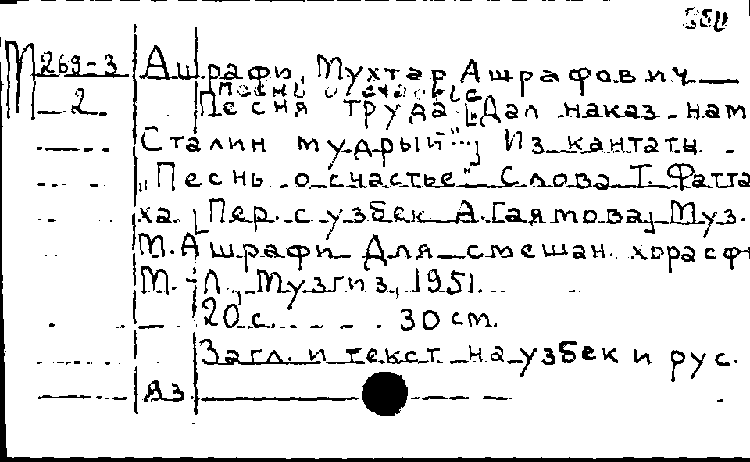 М 269-3 Ашрафи, Мухтар Ашрафович
Песнь о счастье
2 Песня труда. [„Дал наказ нам
Сталин мудрый"...] Из кантаты
„Песнь о счастье" Слова Т. Фатта-
ха. [Пер. с узбек А. Гаямова] Муз.
М. Ашрафи Для смешан. хора с ф
М.-Л., Музгиз, 1951.
20 с. 30 см.
Загл. и текст на узбек и рус.
яз